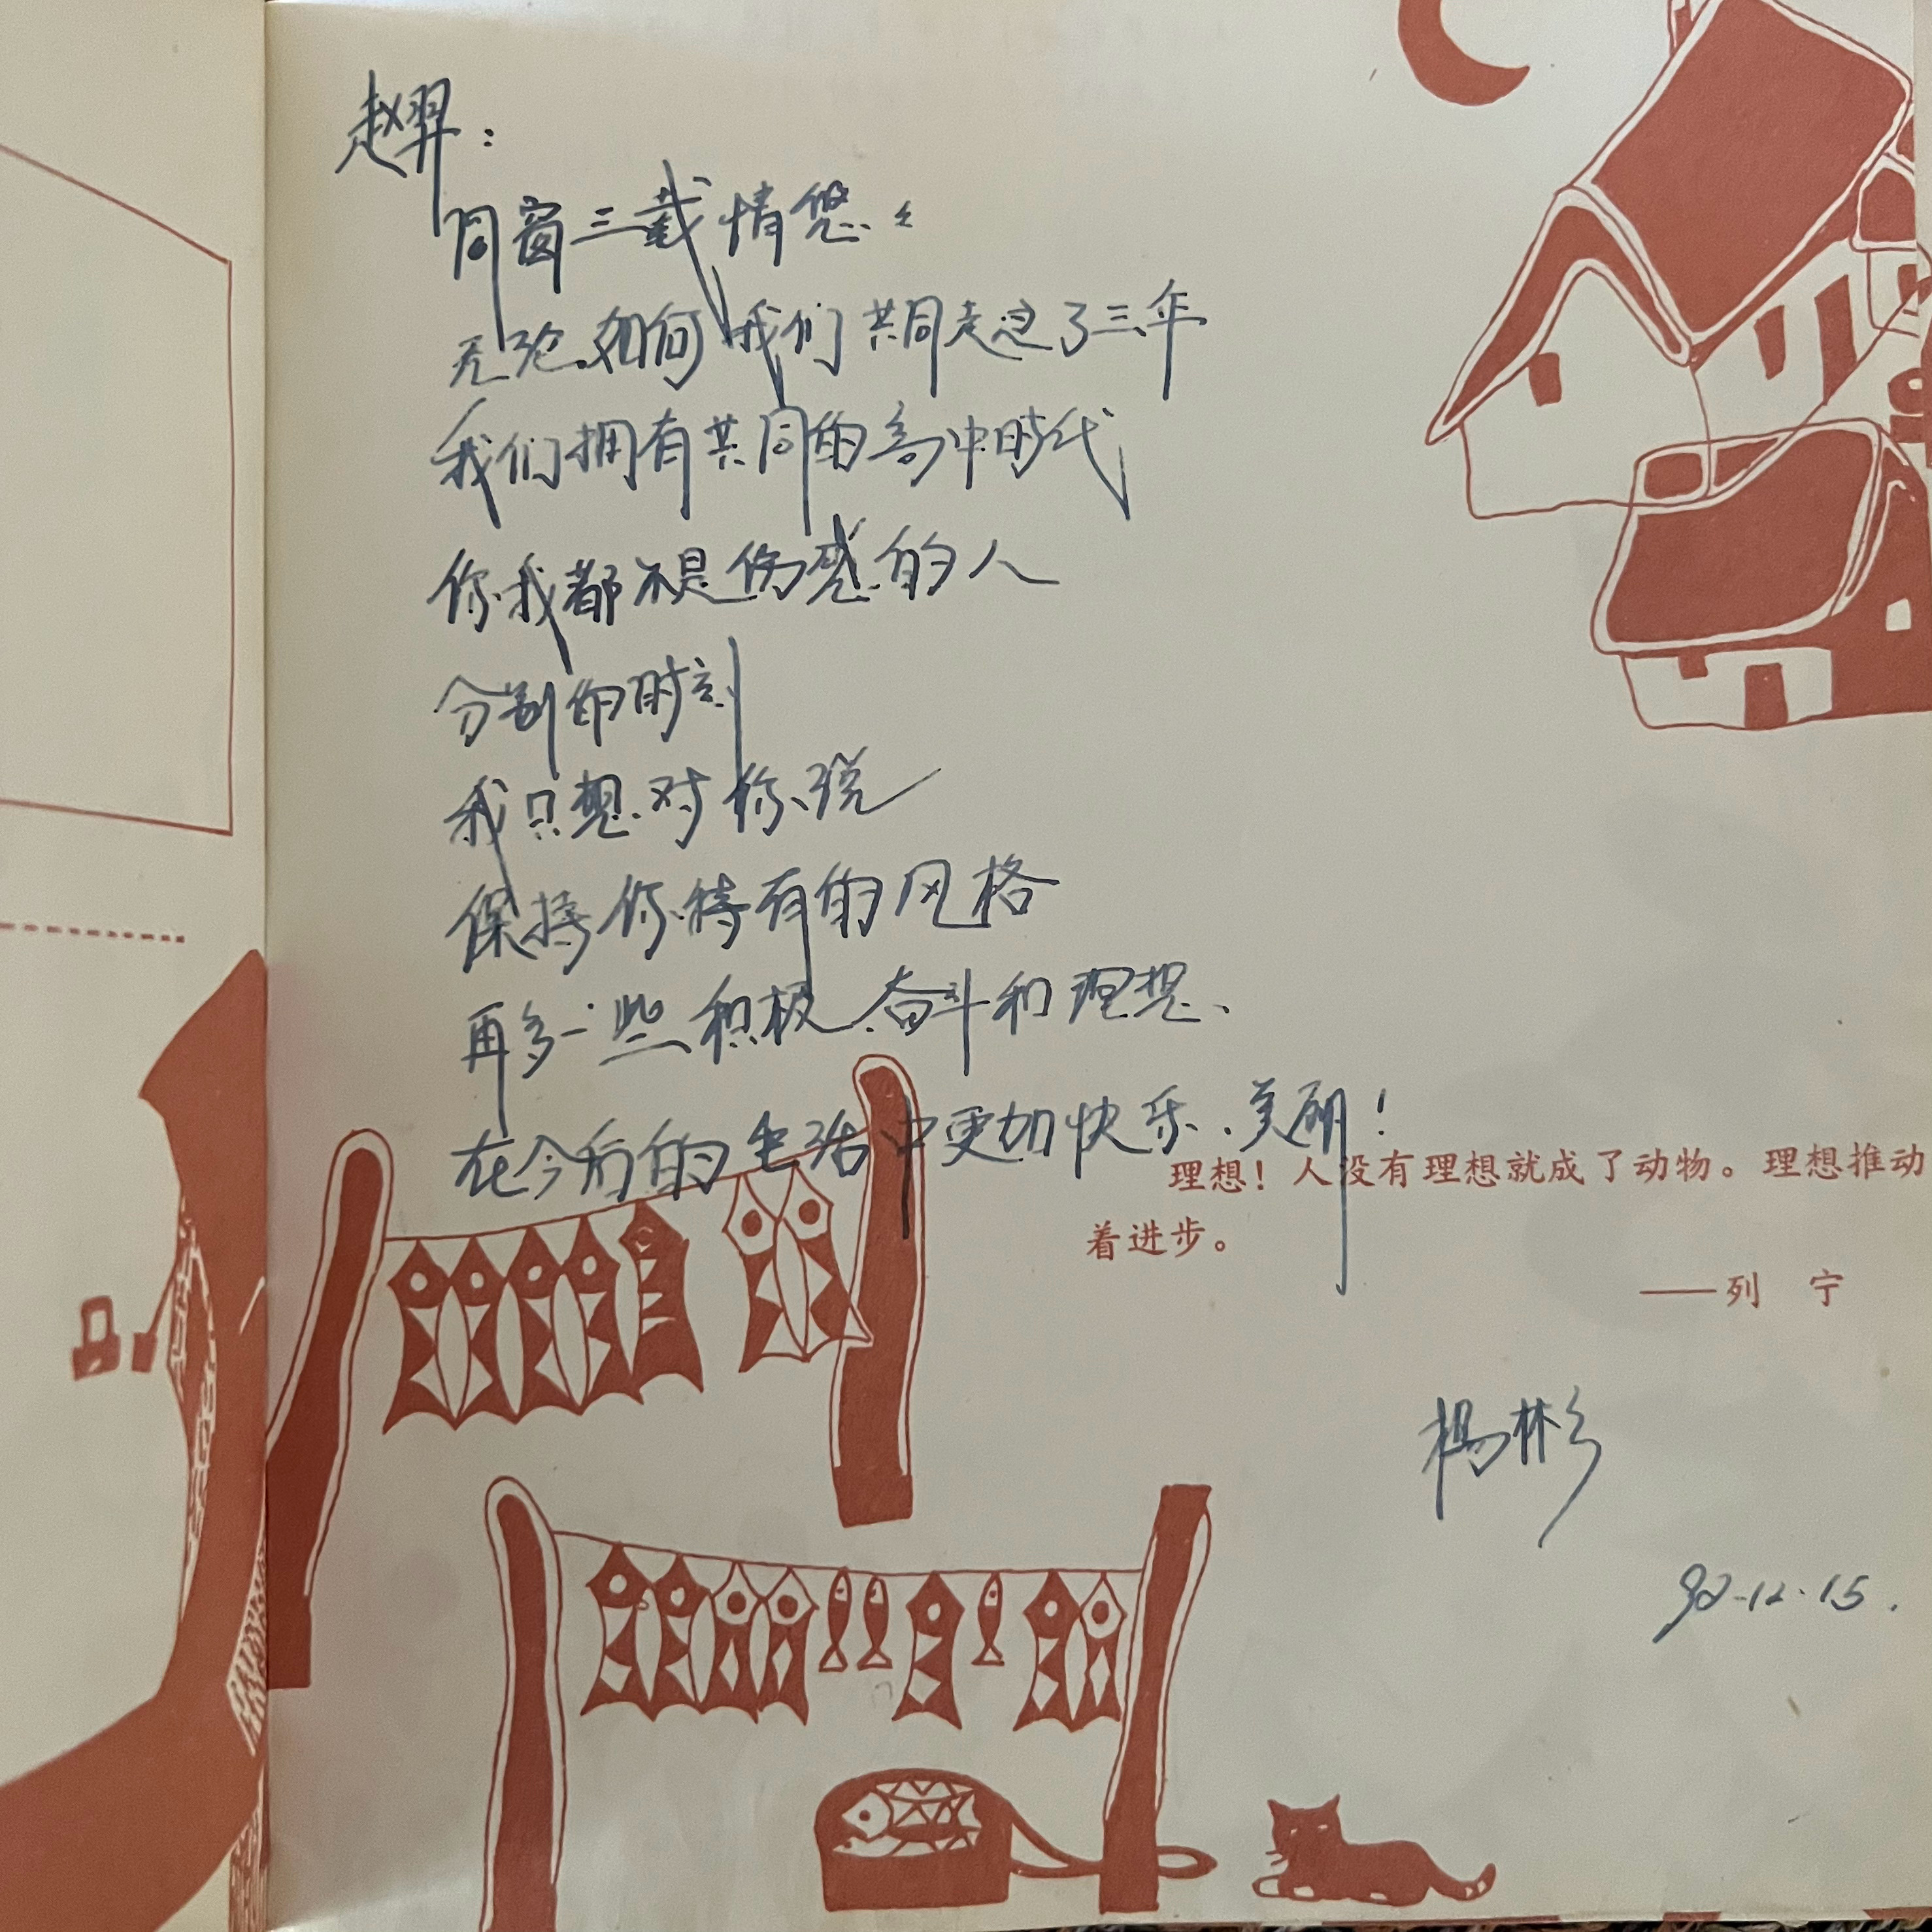 赵羿：
同窗三载情悠々
无论如何我们共同走过了三年
我们拥有共同的高中时代
你我都不是伤感的人
分别的时刻
我只想对你说
保持你特有的风格
再多一些积极、奋斗和理想、
在今后的生活中更加快乐、美丽！
理想！人没有理想就成了动物。理想推动
着进步。
——列 宁
杨彬
92.12.15.